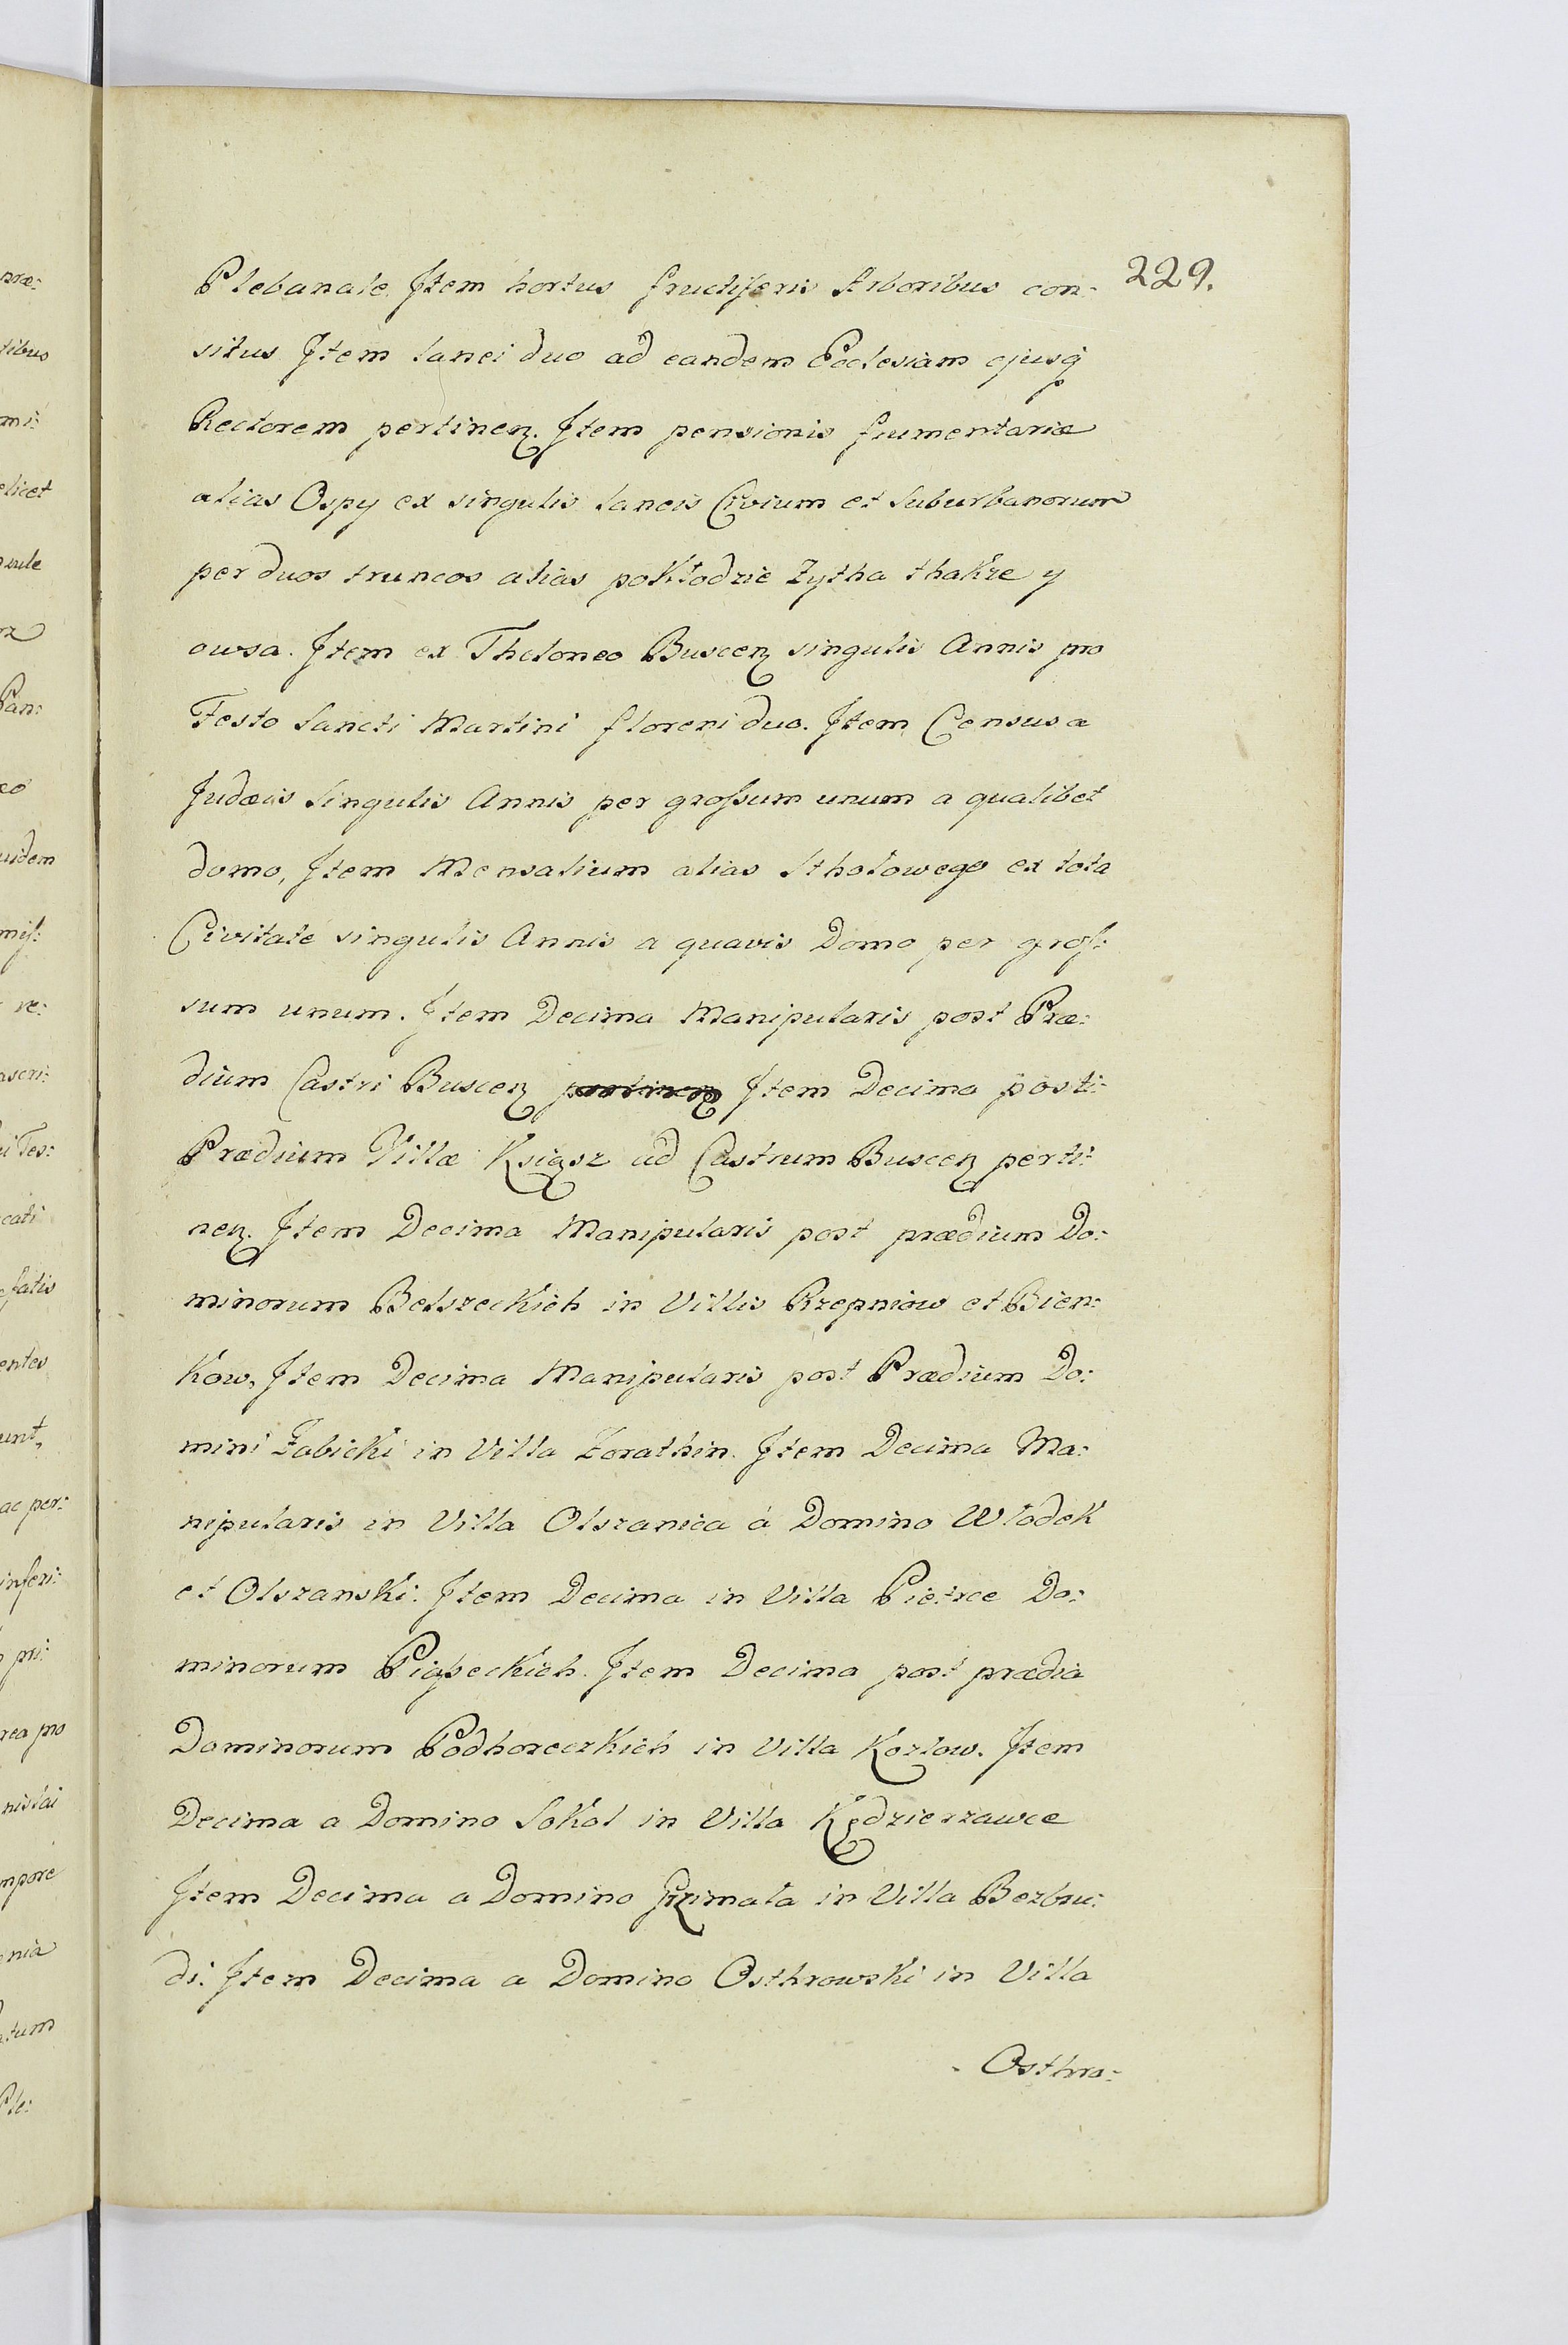 229.
Plebanale. Item hortus fructiferis Arboribus con:
situs Item lanei duo ad eandem Ecclesiam ejusq̃
Rectorem pertinen̄. Item pensionis frumentariæ
alias Ospy ex singulis laneis Civium et Suburbanorum
per duos truncos alias pokłodzie Zytha thakze y
owsa. Item ex Theloneo Buscen̄ singulis Annis pro
Festo Sancti Martini floreni duo. Item Census a
Judæis Singulis Annis per grossum unum a qualibet
domo, Item Mensalium alias Stholowego ex tota
Civitate singulis Annis a quavis Domo per gros:
sum unum. Item Decima Manipularis post Præ:
dium Castri Buscen̄ pertinen̄ Item Decima post:
Prædium Villæ Ksiąsz ad Castrum Buscen̄ perti:
nen̄. Item Decima Manipularis post prædium Do:
minorum Belszeckich in Villis Rzepniow et Bien:
kow, Item Decima Manipularis post Prædium Do:
mini Żabicki in Villa Zorathin. Item Decima Ma:
nipularis in Villa Olszanica á Domino Włodek
et Olszanski. Item Decima in Villa Pietrce Do:
minorum Piąseckich. Item Decima post prædia
Dominorum Podhoreczkich in Villa Kozlow. Item
Decima a Domino Sokol in Villa Kędzierzawce
Item Decima a Domino Grzimała in Villa Bezbru:
di. Item Decima a Domino Osthrowski in Villa
Osthro: